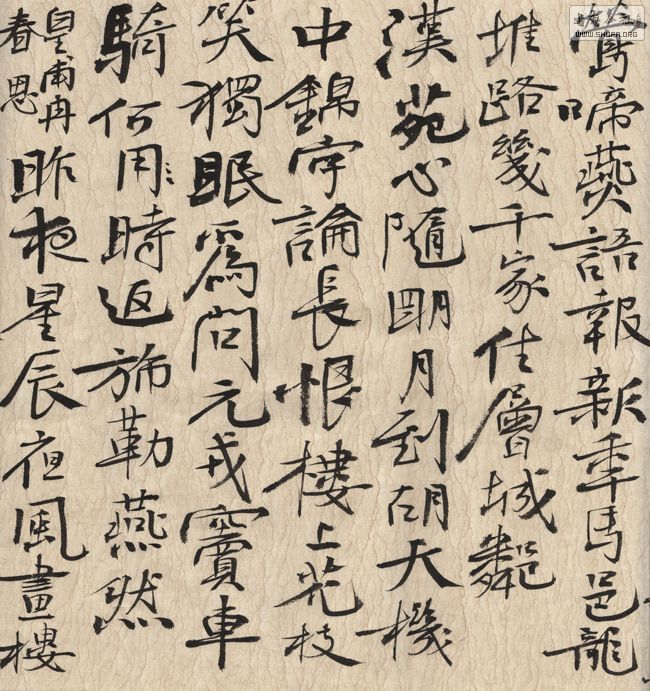 鶯啼燕語報新秊馬邑龍
堆路幾千家住層城鄰
漢苑心隨明月到胡天機
中錦字論長恨樓上花枝
笑獨眠爲問元戎竇車
騎何用時返旆勒燕然
皇甫冉
春思
昨夜星辰夜風畫樓
WWW.SHUFA.ORG